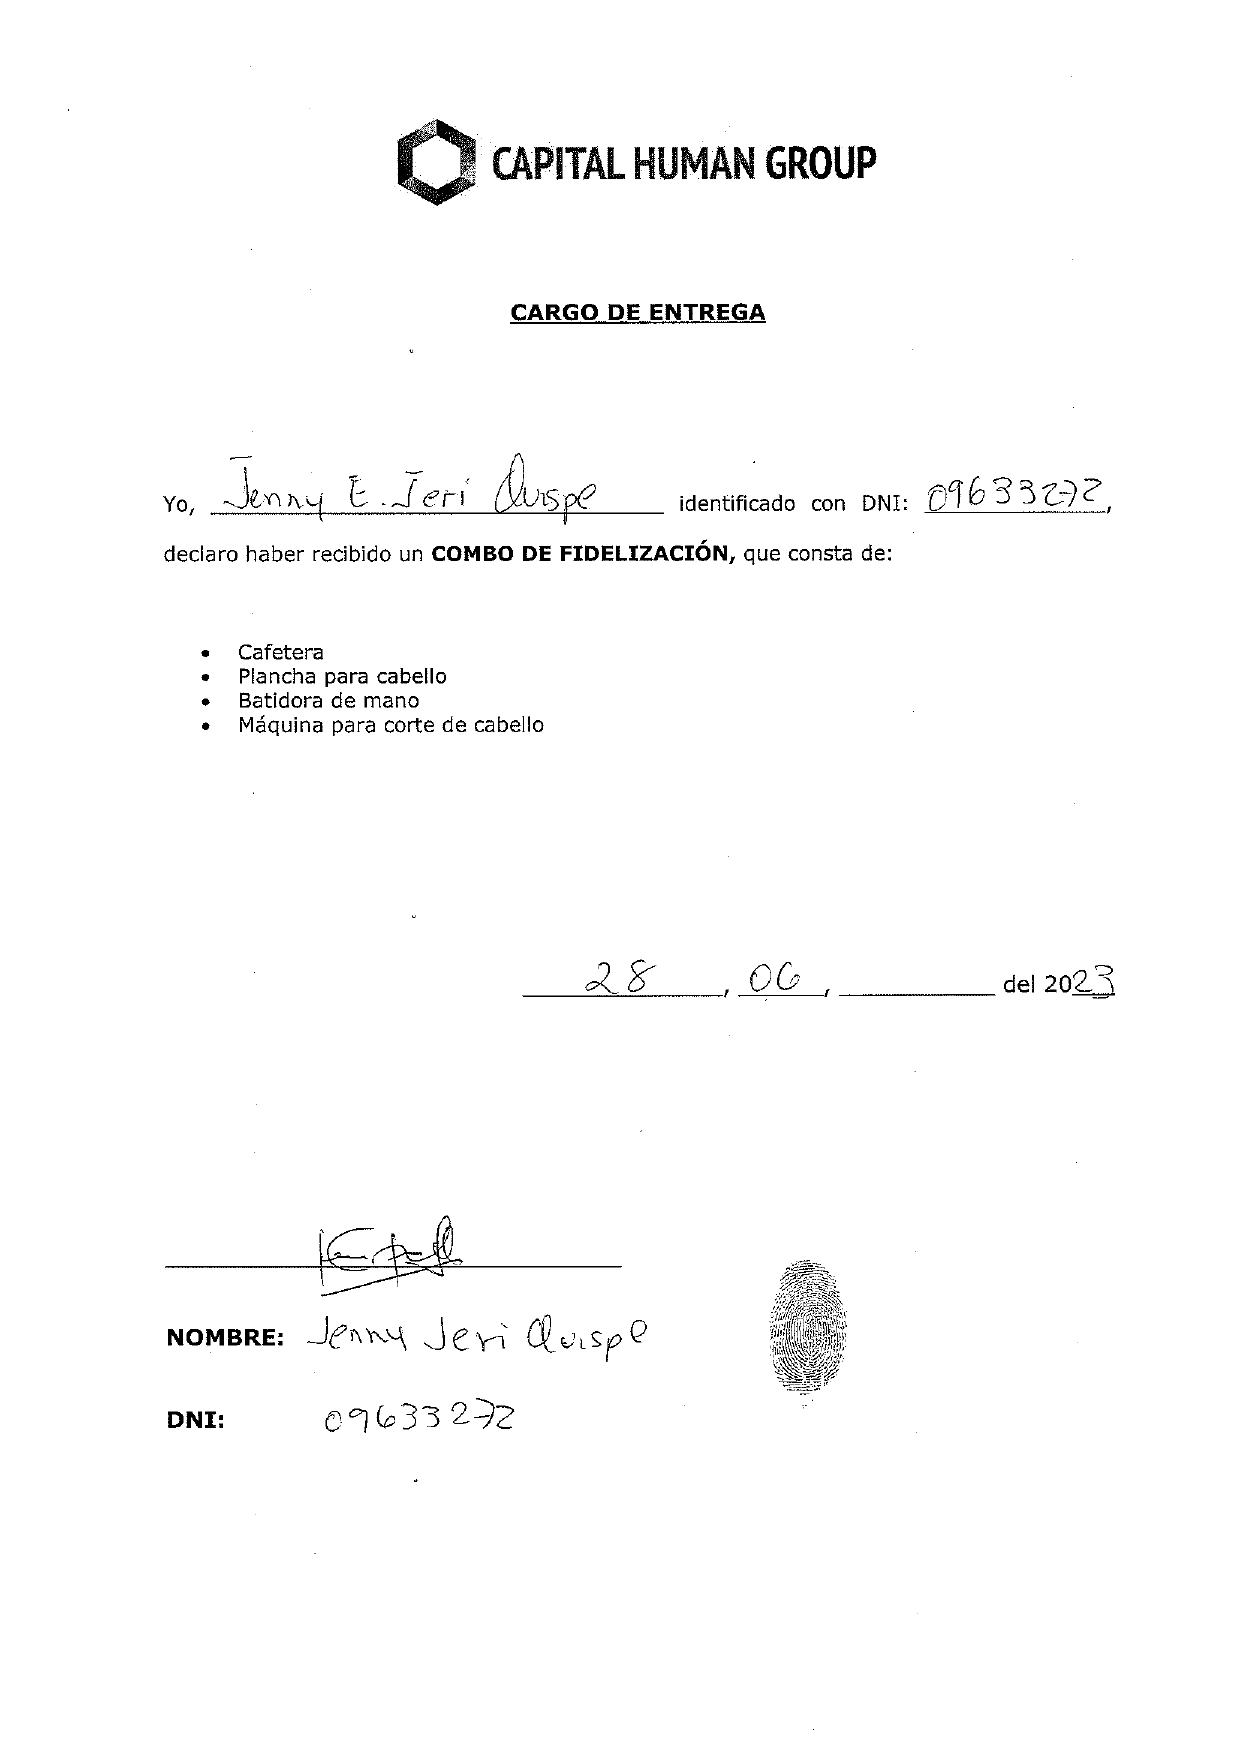 CAPITAL HUMAN GROUP
CARGO DE ENTREGA
Yo, Jenny E. Jeri Quispe identificado con DNI: 09633272,
declaro haber recibido un COMBO DE FIDELIZACIÓN, que consta de:
• Cafetera
• Plancha para cabello
• Batidora de mano
• Máquina para corte de cabello
28, 06, del 2023
NOMBRE: Jenny Jeri Quispe
DNI: 09633272